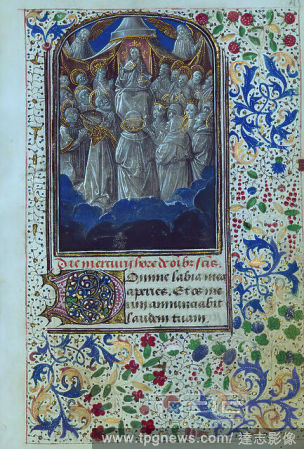 Die mercurii hore de oībz scīs.
Domine labia mea
aperies. Et os me
um annunciabit
laudem tuam.
www.tpgnews.com / 達志影像